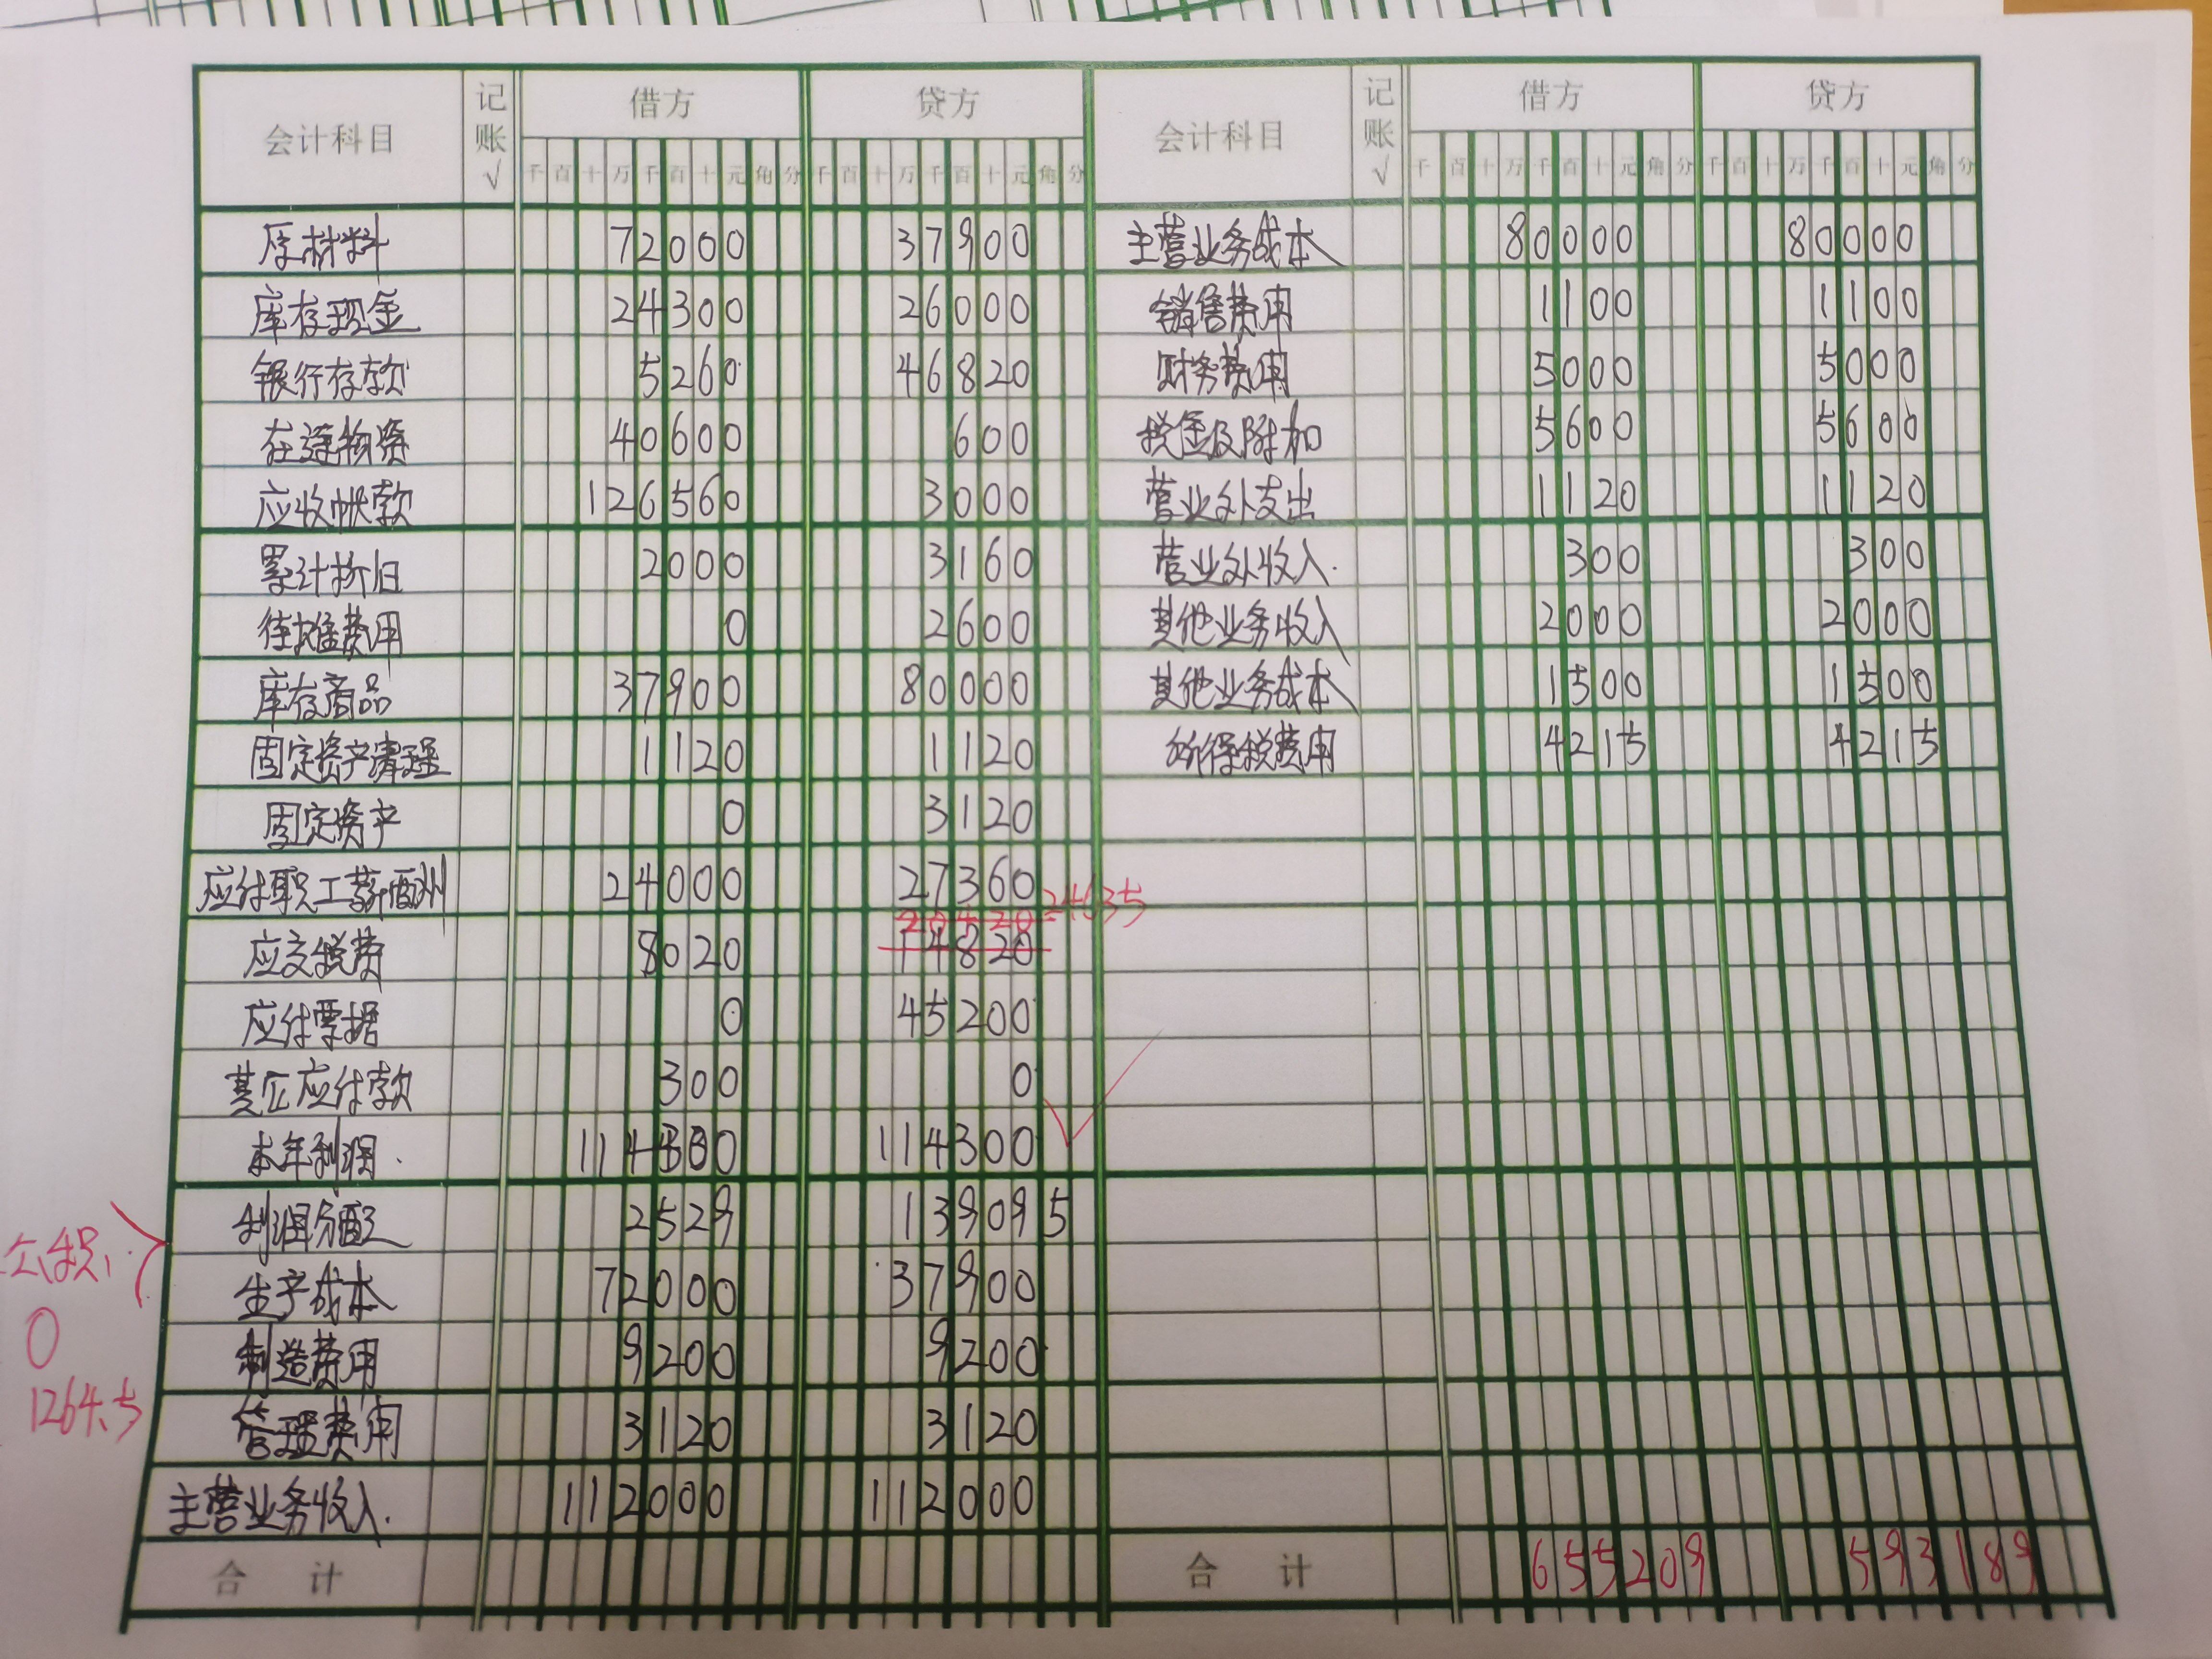 会计科目 记账√ 借方 贷方 会计科目 记账√ 借方 贷方
千百十万千百十元角分 千百十万千百十元角分 千百十万千百十元角分 千百十万千百十元角分
原材料 72000 37900 主营业务成本 80000 80000
库存现金 24300 26000 销售费用 1100 1100
银行存款 5260 46820 财务费用 5000 5000
在途物资 40600 600 税金及附加 5600 5600
应收帐款 126560 3000 营业外支出 1120 1120
累计折旧 2000 3160 营业外收入. 300 300
待摊费用 0 2600 其他业务收入 2000 2000
库存商品 37900 80000 其他业务成本 1500 1500
固定资产清理 1120 1120 所得税费用 4215 4215
固定资产 0 3120
应付职工薪酬 24000 27360
24635
应交税费 8020 14820
应付票据 0 45200
其它应付款 300 0
本年利润. 114300 114300
利润分配 2529 139095
公积.
生产成本 72000 37900
0
制造费用 9200 9200
1264.5
管理费用 3120 3120
主营业务收入. 112000 112000
合计 合计 655209 593189